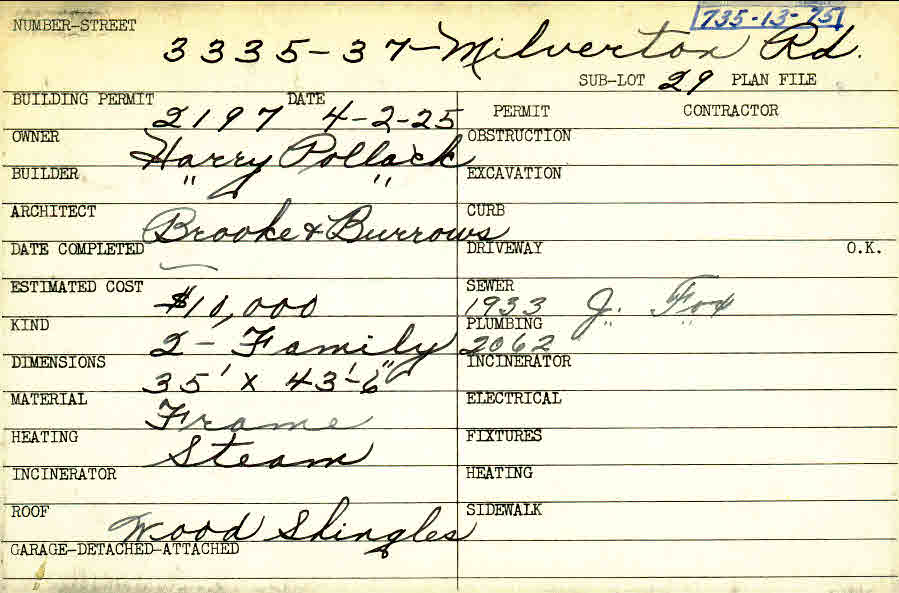 735-13-75
NUMBER-STREET 3335-37-Milverton Rd.
SUB-LOT 29 PLAN FILE
BUILDING PERMIT 2197 DATE 4-2-25
PERMIT CONTRACTOR
OWNER Harry Pollack
OBSTRUCTION
BUILDER " "
EXCAVATION
ARCHITECT Brooke & Burrows
CURB
DATE COMPLETED —
DRIVEWAY O.K.
ESTIMATED COST $10,000
SEWER 1933 J. Fox
KIND 2-Family
PLUMBING 2062 " "
DIMENSIONS 35' x 43'-6"
INCINERATOR
MATERIAL Frame
ELECTRICAL
HEATING Steam
FIXTURES
INCINERATOR
HEATING
ROOF Wood Shingles
SIDEWALK
GARAGE-DETACHED-ATTACHED
"